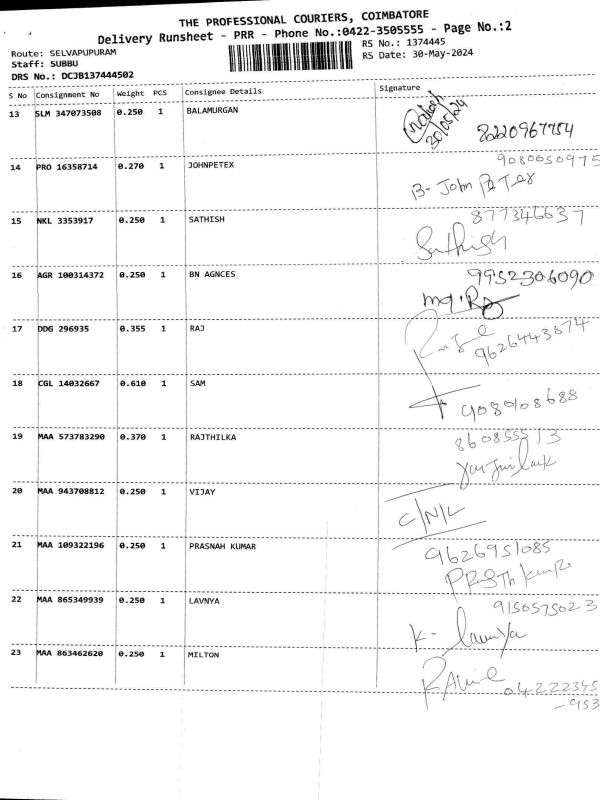 THE PROFESSIONAL COURIERS, COIMBATORE
Delivery Runsheet - PRR - Phone No.:0422-3505555 - Page No.:2
Route: SELVAPUPURAM
RS No.: 1374445
Staff: SUBBU
RS Date: 30-May-2024
DRS No.: DCJB137444502
S No Consignment No Weight PCS Consignee Details Signature
13 SLM 347073508 0.250 1 BALAMURGAN
30/05/24
8220967754
14 PRO 16358714 0.270 1 JOHNPETEX
9080050975
B. John
15 NKL 3353917 0.250 1 SATHISH
877346637
Sathish
16 AGR 100314372 0.250 1 BN AGNCES
9952306090
17 DDG 296935 0.355 1 RAJ
9626443874
18 CGL 14032667 0.610 1 SAM
9080108688
19 MAA 573783290 0.370 1 RAJTHILKA
860855513
20 MAA 943708812 0.250 1 VIJAY
C/N/L
21 MAA 109322196 0.250 1 PRASNAH KUMAR
9626951085
22 MAA 865349939 0.250 1 LAVNYA
9150575023
K. Lavnya
23 MAA 863462620 0.250 1 MILTON
04222345
-953